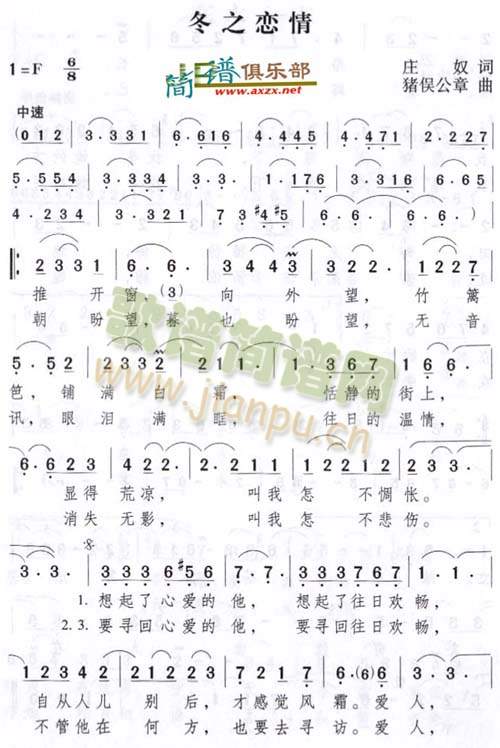 冬之恋情
1=F 6/8
简谱俱乐部
www.axzx.net
庄 奴 词
猪俣公章 曲
中速
(012 3·331 6·616 4·445 4·471 2·227
5·554 3·334 3·3· 1·176 3·316 6·65
4·234 3·234 3#4#5
2331 6·6· 3443 322· 2217
推开窗,(3)向外望,竹篱
朝盼望,暮也盼望,无音
5·52 2332 211· 1367 166·
笆,铺满白霜,恬静的街上,
讯,眼泪满眶,往日的温情,
6·623 1·2· 2·211 2·12 3·3·
显得荒凉,叫我怎不惆怅。
消失无影,叫我怎不悲伤。
3·3· 3336#56 7·7· 333767 1·1·
1. 想起了心爱的他,想起了往日欢畅,
2.3. 要寻回心爱的他,要寻回往日欢畅,
自从人儿别后,才感觉风霜。爱人,
不管他在何方,也要去寻访。爱人,
歌谱简谱网
www.jianpu.cn